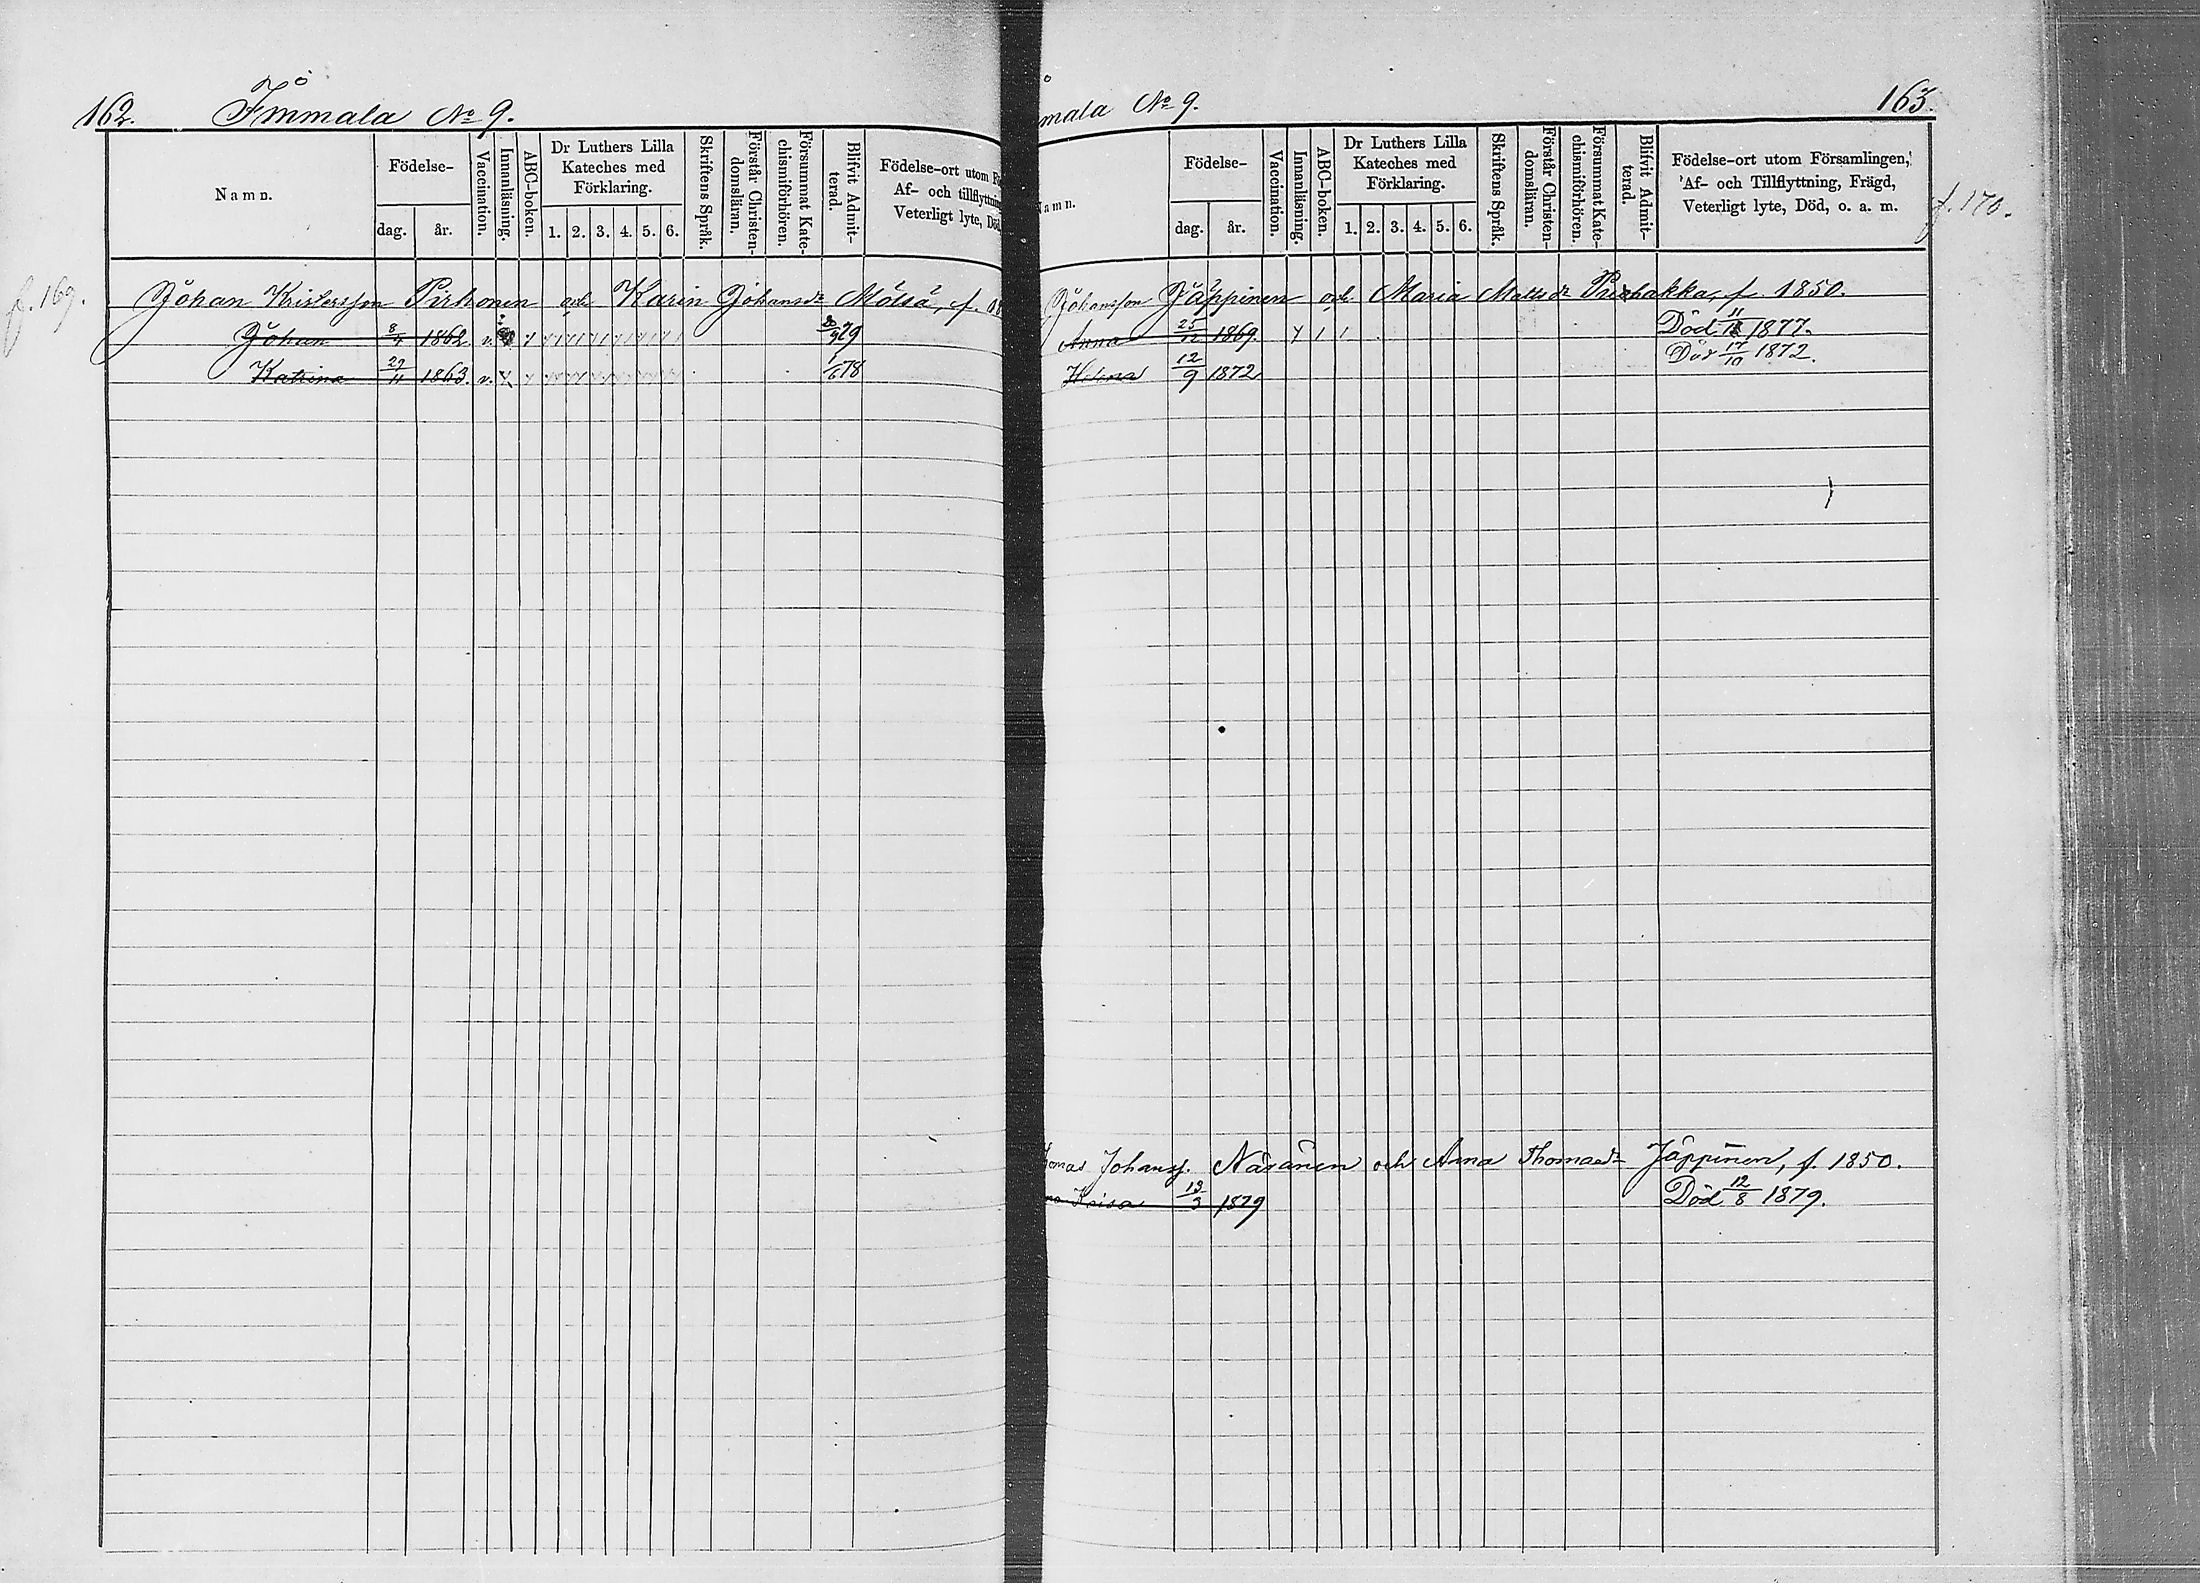 162. Immala No 9.
Namn.
Födelse-
dag. år.
Vaccination.
Innanläsning.
ABC-boken.
Dr Luthers Lilla Kateches med Förklaring.
1. 2. 3. 4. 5. 6.
Skriftens Språk.
Förstår Christen-domsläran.
Försummat Kate-chismiförhören.
Blifvit Admit-terad.
Födelse-ort utom
Af- och tillflyttning
Veterligt lyte, Död,
f. 169.
Johan Kristersson Pirhonen och Karin Johansdr Mölsä, f. 18
Johan 8/4 1862 v. 79
Katrina 29/11 1863. v. 1/6 78
mala No 9. 163.
Namn.
Födelse-
dag. år.
Vaccination.
Innanläsning.
ABC-boken.
Dr Luthers Lilla Kateches med Förklaring.
1. 2. 3. 4. 5. 6.
Skriftens Språk.
Förstår Christen-domsläran.
Försummat Kate-chismiförhören.
Blifvit Admit-terad.
Födelse-ort utom Församlingen,
Af- och Tillflyttning, Frägd,
Veterligt lyte, Död, o. a. m.
f. 170.
Johansson Jäppinen och Maria Mattsdr f. 1850.
Anna 25/12 1869. Död 1877.
Helena 12/9 1872 Död 17/10 1872.
Johanss. Näränen och Anna Thomasdr Jäppinen, f. 1850.
Kaisa 13/3 1879 Död 12/8 1879.